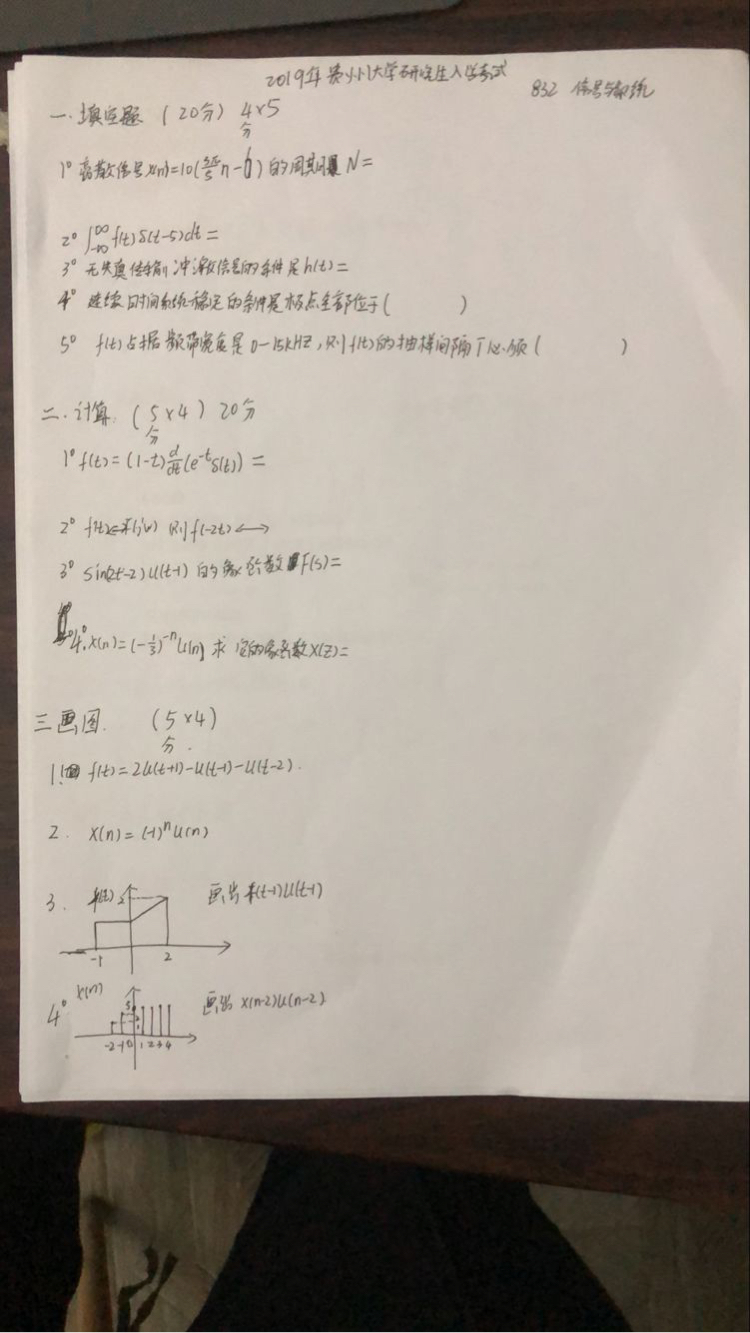 2019年贵州大学研究生入学考试 832 信号与系统
一.填空题 (20分) 4×5
分
1° 离散信号x(n)=10(n-6)的周期N=
2° ∫_{-∞}^{∞} f(t)δ(t-5)dt=
3° 无失真传输,冲激信号的条件是h(t)=
4° 连续时间系统稳定的条件是极点全部位于( )
5° f(t)占据频带宽度是0-15kHZ,则f(t)的抽样间隔T必须( )
二.计算 (5×4) 20分
分
1° f(t)=(1-t)d/dt(e^{-t}δ(t))=
2° f(t)↔F(jω) 则f(-2t)↔
3° sin(2t-2)u(t-1)的象函数F(s)=
4. x(n)=(-1/3)^{-n}u(n) 求它的象函数X(z)=
三画图. (5×4)
分.
1. f(t)=2u(t+1)-u(t-1)-u(t-2).
2. x(n)=(-1)^n u(n)
3. f(t) 2 画出f(t-1)u(t-1)
-1 2
4° x(n) 3 画出x(n-2)u(n-2)
-2 -1 0 1 2 3 4